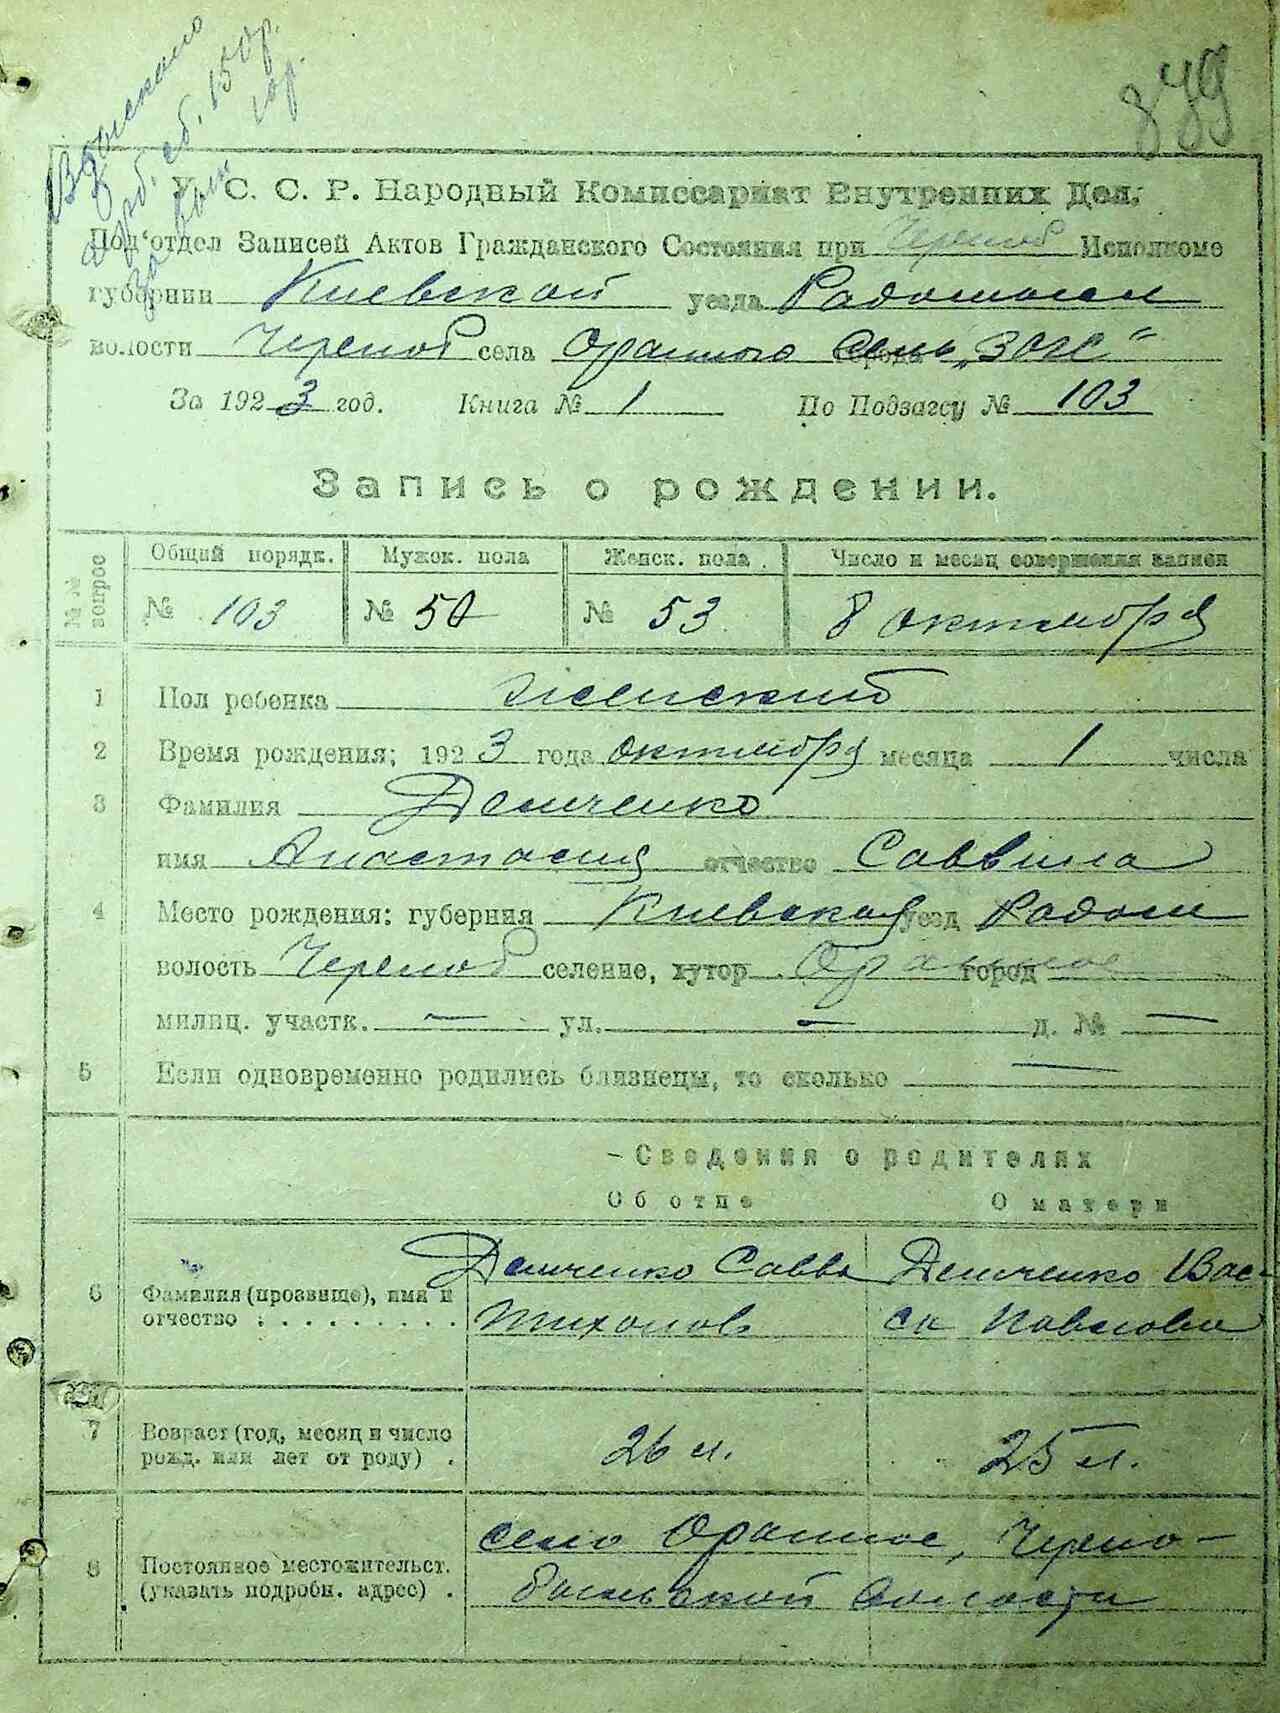 Взыскано
сб. 150р.
879
У. С. С. Р. Народный Комиссариат Внутренних Дел.
Под'отдел Записей Актов Гражданского Состояния при Черноб Исполкоме
губернии Киевской уезда Радомысл
волости Черноб села Оранного города „ЗАГС“
За 1923 год. Книга № 1 По Подзагсу № 103
Запись о рождении.
№№ вопрос
Общий порядк. Мужск. пола Женск. пола Число и месяц совершения записи
№ 103 № 50 № 53 8 октября
1 Пол ребенка женский
2 Время рождения: 1923 года октября месяца 1 числа
3 Фамилия Демченко
имя Анастасия отчество Саввина
4 Место рождения: губерния Киевская уезд Радом
волость Черноб селение, хутор Оранное город
милиц. участк. — ул. — д. № —
5 Если одновременно родились близнецы, то сколько —
Сведения о родителях
Об отце О матери
6 Фамилия (прозвище), имя и отчество : . . . . . . . .
Демченко Савва Тихонов
Демченко Вас-са Павлова
7 Возраст (год, месяц и число рожд. или лет от роду) .
26 л. 25 л.
8 Постоянное местожительст. (указать подробн. адрес) .
село Оранное, Черно-
быльской волости